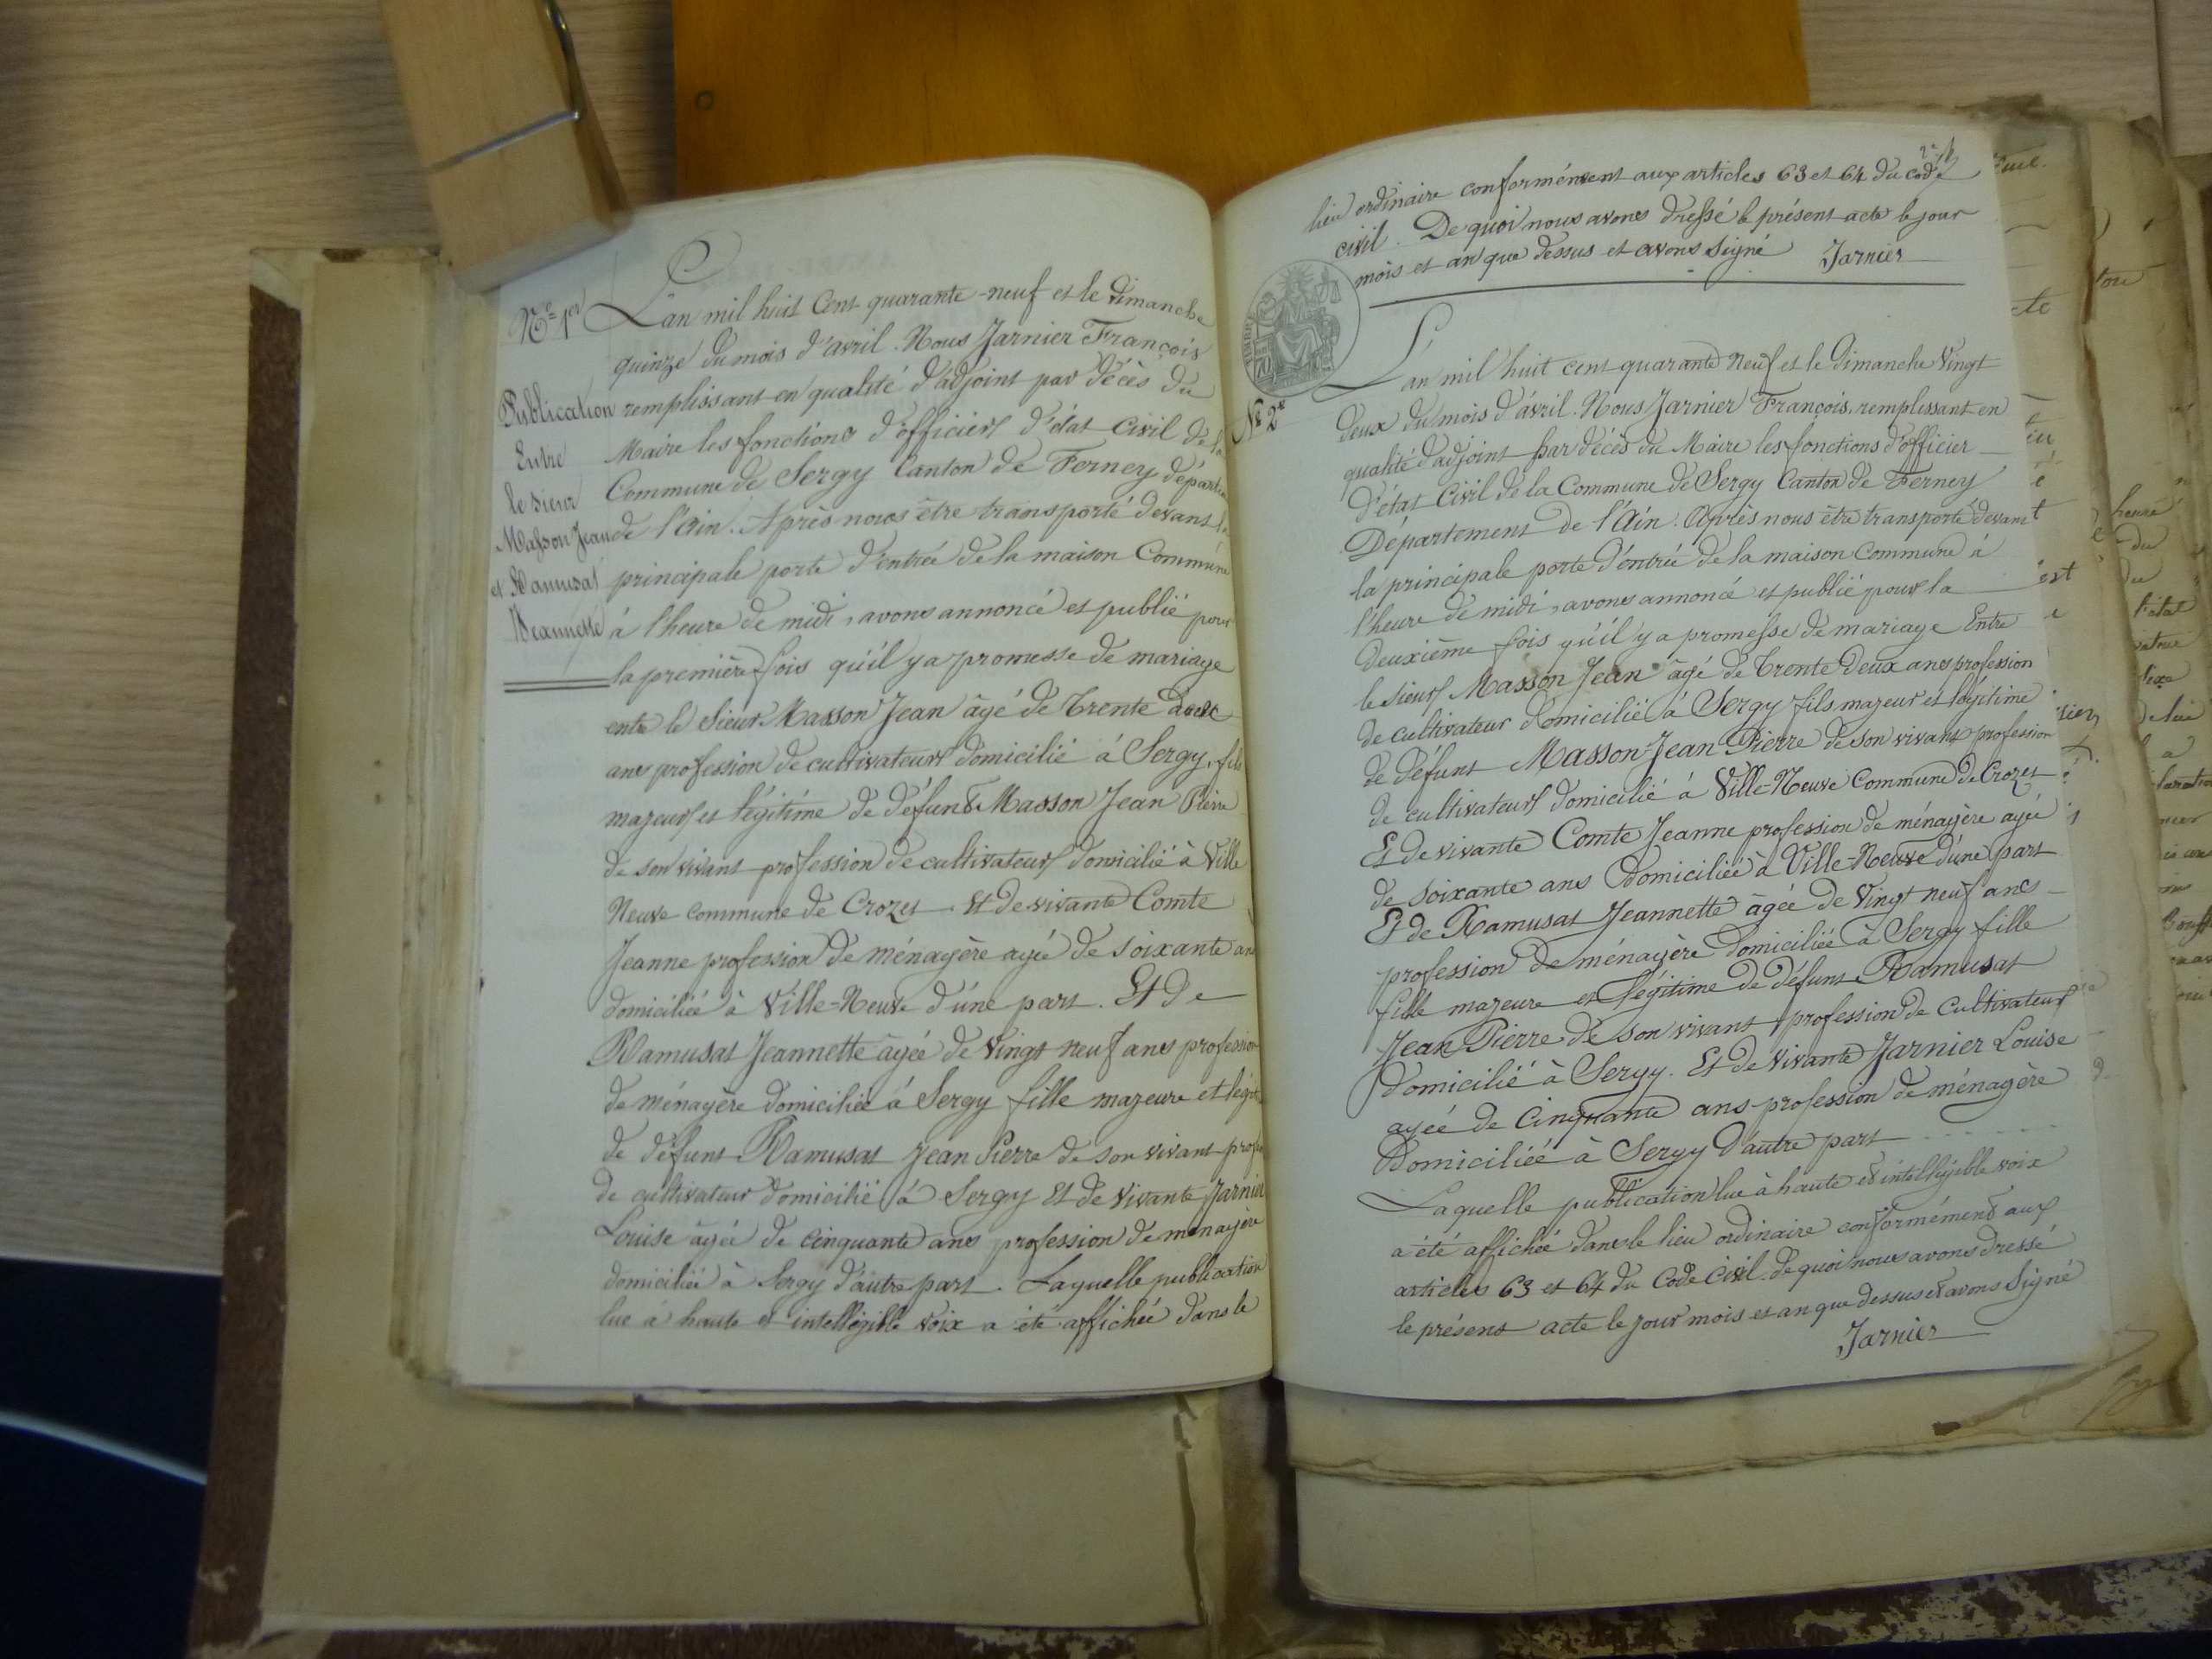 Nº 1er
Publication
Entre
le sieur
Masson Jean
et Ramusat
Jeannette
L'an mil huit Cent quarante-neuf et le dimanche
quinze du mois d'avril. Nous Jarnier François
remplissant en qualité d'adjoint par décès du
Maire les fonctions d'officier d'état Civil de la
Commune de Sergy Canton de Ferney départ
de l'Ain. Après nous être transporté devant la
principale porte d'entrée de la maison Commune
à l'heure de midi, avons annoncé et publié pour
la première fois qu'il y a promesse de mariage
entre le Sieur Masson Jean âgé de Trente deux
ans profession de cultivateur domicilié à Sergy, fils
majeur et légitime de défunt Masson Jean Pierre
de son vivant profession de cultivateur domicilié à Ville
Neuve commune de Crozet. Et de vivante Comte
Jeanne profession de ménagère agée de soixante ans
domiciliée à Ville-Neuve d'une part. Et de
Ramusat Jeannette âgée de Vingt neuf ans profession
de ménagère domiciliée à Sergy fille majeure et légit
de défunt Ramusat Jean Pierre de son vivant profe
de cultivateur domicilié à Sergy Et de Vivante Jarnier
Louise âgée de cinquante ans profession de ménagère
domiciliée à Sergy d'autre part. Laquelle publication
lue à haute et intelligible voix a été affichée dans le
lieu ordinaire conformément aux articles 63 et 64 du code
civil. De quoi nous avons dressé le présent acte le jour
mois et an que dessus et avons signé Jarnier
Nº 2e
L'an mil huit cent quarante Neuf et le Dimanche Vingt
deux du mois d'avril. Nous Jarnier François, remplissant en
qualité d'adjoint par décès du Maire les fonctions d'officier
d'état Civil de la Commune de Sergy Canton de Ferney
Département de l'Ain. Après nous être transporté devant
la principale porte d'entrée de la maison Commune à
l'heure de midi, avons annoncé et publié pour la
deuxième fois qu'il y a promesse de mariage Entre
le Sieur Masson Jean âgé de Trente Deux ans profession
de cultivateur domicilié à Sergy fils majeur et légitime
de défunt Masson Jean Pierre de son vivant profession
de cultivateur domicilié à Ville-Neuve Commune de Crozet
Et de vivante Comte Jeanne profession de ménagère agée
de soixante ans Domiciliée à Ville-Neuve d'une part
Et de Ramusat Jeannette âgée de Vingt neuf ans
profession de ménagère domiciliée à Sergy fille
fille majeure et légitime de défunt Ramusat
Jean Pierre de son vivant profession de Cultivateur
Domicilié à Sergy. Et de Vivante Jarnier Louise
agée de Cinquante ans profession de ménagère
Domiciliée à Sergy D'autre part
Laquelle publication lue à haute et intelligible voix
a été affichée dans le lieu ordinaire conformément aux
articles 63 et 64 du Code Civil. de quoi nous avons dressé
le présent acte le jour mois et an que dessus et avons Signé
Jarnier